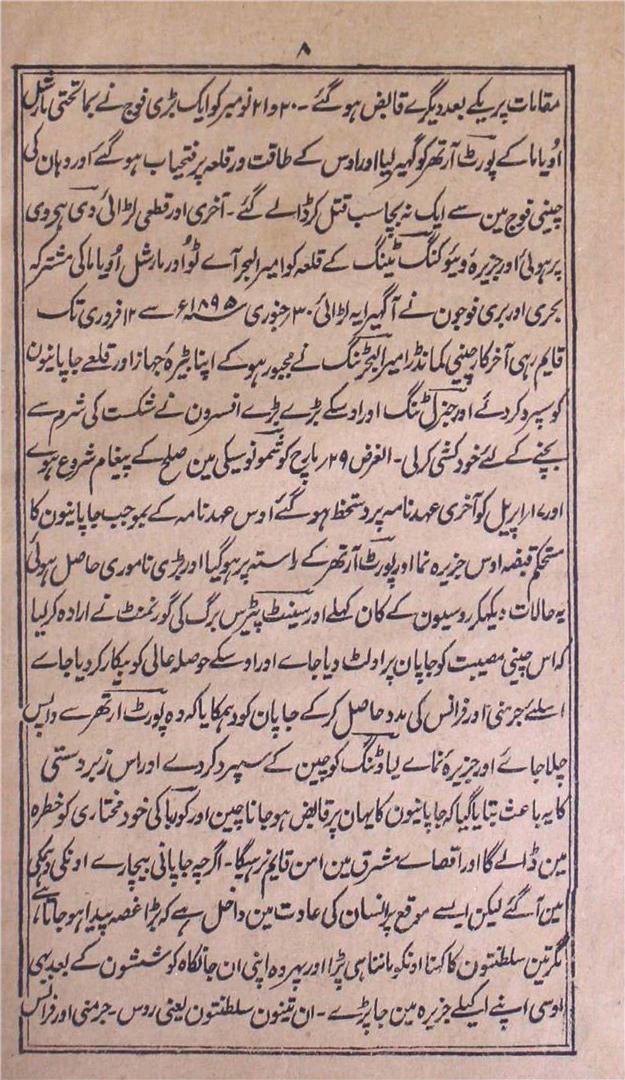 ۸
مقامات پر یکے بعد دیگرے قابض ہوگئے ۔ ۲۰ و ۲۱ نومبر کو ایک بڑی فوج نے بماتحتی مارشل
اویاما کے پورٹ آرتھر کو گھیر لیا اور اوس کے طاقت ور قلعہ پر فتحیاب ہوگئے اور وہان کی
چینی فوج مین سے ایک نہ بچا سب قتل کر ڈالے گئے ۔ آخری اور قطعی لڑائی وی ہی وی
پر ہوئی اور جزیرۂ ویوکنگ ٹینگ کے قلعہ کو امیر البحر آے ٹو اور مارشل اویاما کی مشترکہ
بحری اور بری فوجون نے آگھیرا یہ لڑائی ۳۰ جنوری ۱۸۹۵ء سے ۱۲ فروری تک
قایم رہی آخر کار چینی کمانڈر امیر البحر ٹنگ نے مجبور ہو کے اپنا بیڑۂ جہاز اور قلعے جاپانیون
کو سپرد کر دئے اور جنرل ٹنگ اور اوسکے بڑے بڑے افسرون نے شکست کی شرم سے
بچنے کے لئے خودکشی کر لی ۔ الغرض ۲۹ مارچ کو شمونوسیکی مین صلح کے پیغام شروع ہوے
اور ۱۷ اپریل کو آخری عہدنامہ پر دستخط ہوگئے اوس عہدنامہ کے بموجب جاپانیون کا
مستحکم قبضہ اوس جزیرہ نما اور پورٹ آرتھر کے راستہ پر ہوگیا اور بڑی ناموری حاصل ہوئی
یہ حالات دیکہکر روسیون کے کان کہلے اور سینٹ پیٹرس برگ کی گورنمنٹ نے ارادہ کر لیا
کہ اس چینی مصیبت کو جاپان پر اولٹ دیا جاے اور اوسکے حوصلہ عالی کو بیکار کر دیا جاے
اسلیے جرمنی اور فرانس کی مدد حاصل کرکے جاپان کو دہمکایا کہ وہ پورٹ ارتھر سے واپس
چلا جاے اور جزیرہ نماے لیاؤٹنگ کو چین کے سپرد کر دے اور اس زبردستی
کا یہ باعث بتایا گیا کہ جاپانیون کا یہان پر قابض ہو جانا چین اور کوریا کی خود مختاری کو خطرہ
مین ڈالے گا اور اقصاے مشرق مین امن قایم نرہیگا ۔ اگرچہ جاپانی بیچارے اونکی دہمکی
مین آگئے لیکن ایسے موقع پر انسان کی عادت مین داخل ہے کہ بڑا غصہ پیدا ہو جاتا ہے،
مگر تین سلطنتون کا کہنا اونکو ماننا ہی پڑا اور پہر وہ اپنی ان جانکاہ کوششون کے بعد بہی
اوسی اپنے اکیلے جزیرہ مین جا پڑے ۔ ان تینون سلطنتون یعنی روس ۔ جرمنی اور فرانس